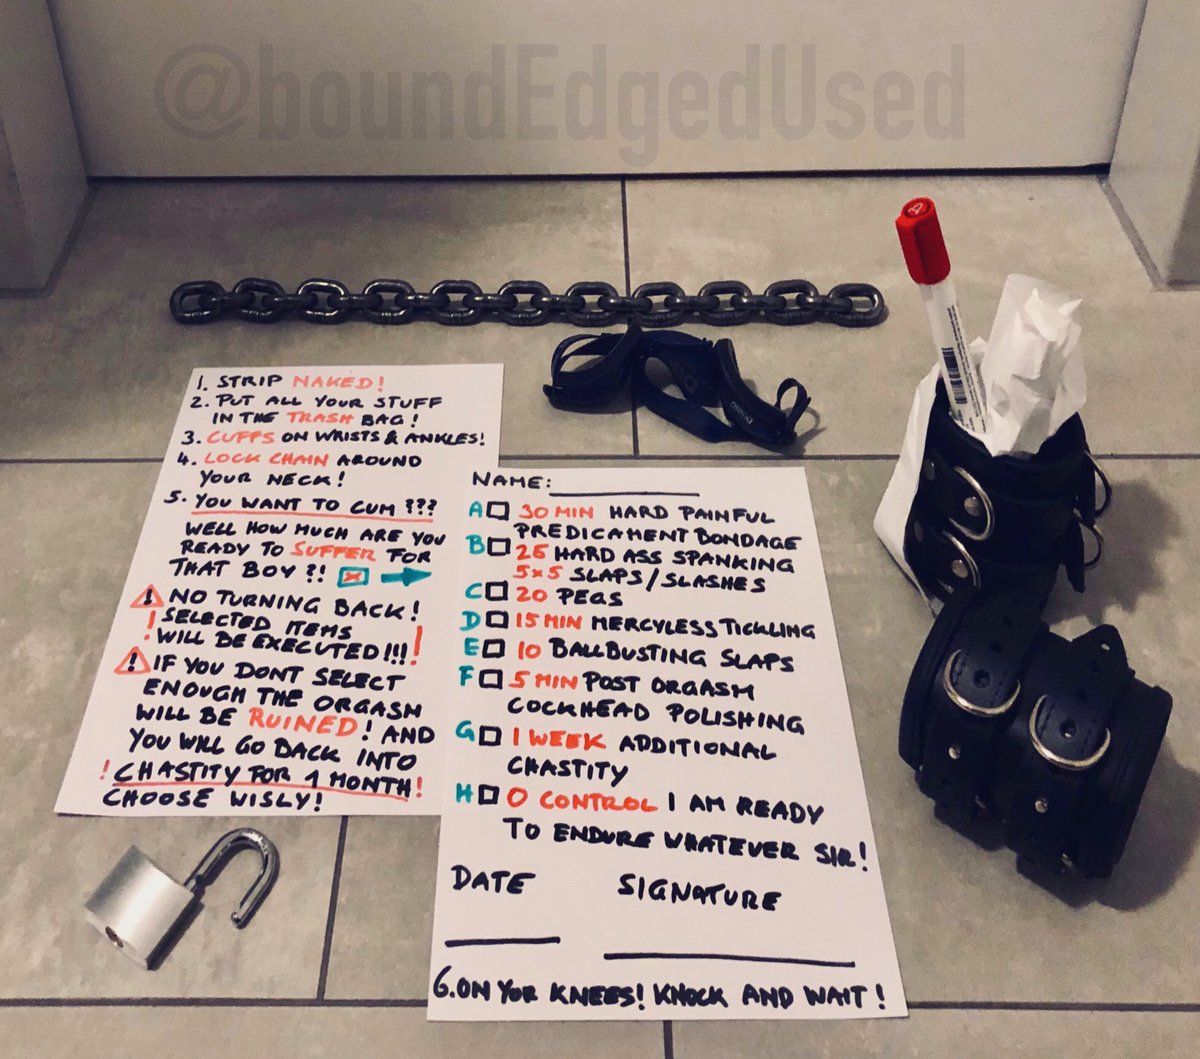 @boundEdgedUsed
1. STRIP NAKED!
2. PUT ALL YOUR STUFF
IN THE TRASH BAG!
3. CUFFS ON WRISTS & ANKLES!
4. LOCK CHAIN AROUND
YOUR NECK!
5. YOU WANT TO CUM???
WELL HOW MUCH ARE YOU
READY TO SUFFER FOR
THAT BOY?!
! NO TURNING BACK!
! SELECTED ITEMS
WILL BE EXECUTED!!! !
! IF YOU DONT SELECT
ENOUGH THE ORGASM
WILL BE RUINED! AND
YOU WILL GO BACK INTO
! CHASTITY FOR 1 MONTH!
CHOOSE WISLY!
NAME:
A 30 MIN HARD PAINFUL
PREDICAMENT BONDAGE
B 25 HARD ASS SPANKING
5x5 SLAPS/SLASHES
C 20 PEGS
D 15 MIN MERCYLESS TICKLING
E 10 BALLBUSTING SLAPS
F 5 MIN POST ORGASM
COCKHEAD POLISHING
G 1 WEEK ADDITIONAL
CHASTITY
H 0 CONTROL I AM READY
TO ENDURE WHATEVER SIR!
DATE SIGNATURE
6. ON YOR KNEES! KNOCK AND WAIT!